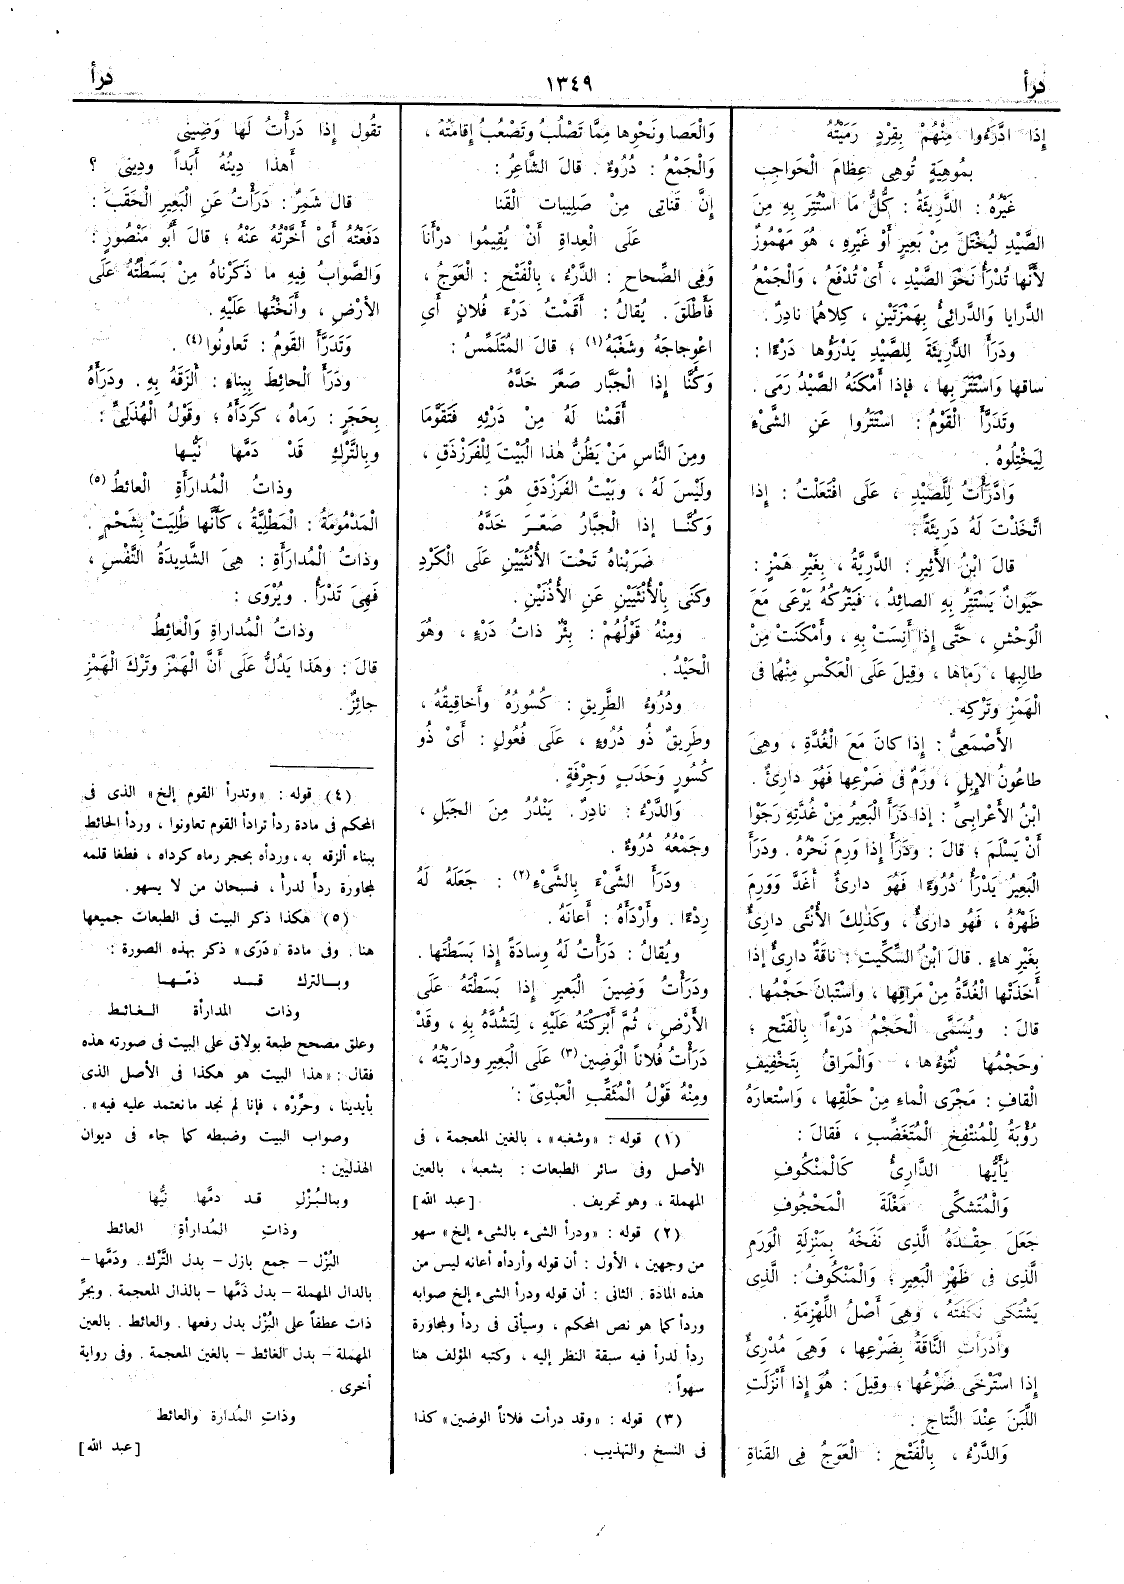 درأ
١٣٤٩
درأ
إذا ادَّرَءُوا مِنْهُمْ بِقِرْدٍ رَمَيْتُهُ
بِمُوهِيَةٍ تُوهِى عِظامَ الْحَواجِبِ
غَيْرُهُ : الدَّرِيئَةُ : كُلُّ مَا اسْتُتِرَ بِهِ مِنَ
الصَّيْدِ لِيُخْتَلَ مِنْ بَعِيرٍ أَوْ غَيْرِهِ ، هُوَ مَهْمُوزٌ
لأَنَّها تُدْرَأُ نَحْوَ الصَّيْدِ ، أَىْ تُدْفَعُ ، وَالْجَمْعُ
الدَّرايا وَالدَّرائِىُّ بِهَمْزَتَيْنِ ، كِلاهُما نادِرٌ .
وَدَرَأَ الدَّرِيئَةَ لِلصَّيْدِ يَدْرَؤُها دَرْءًا :
ساقَها وَاسْتَتَرَ بِها ، فَإذا أَمْكَنَهُ الصَّيْدُ رَمَى .
وَتَدَرَّأَ الْقَوْمُ : اسْتَتَرُوا عَنِ الشَّىْءِ
لِيَخْتِلُوهُ .
وَادَّرَأْتُ لِلصَّيْدِ ، عَلَى افْتَعَلْتُ : إذا
اتَّخَذْتَ لَهُ دَرِيئَةً .
قالَ ابْنُ الأَثِيرِ : الدَّرِيَّةُ ، بِغَيْرِ هَمْزٍ :
حَيَوانٌ يَسْتَتِرُ بِهِ الصائِدُ ، فَيَتْرُكُهُ يَرْعَى مَعَ
الْوَحْشِ ، حَتَّى إذا أَنِسَتْ بِهِ ، وَأَمْكَنَتْ مِنْ
طالِبِها ، رَماها ، وَقِيلَ عَلَى الْعَكْسِ مِنْهُما فى
الْهَمْزِ وَتَرْكِهِ .
الأَصْمَعِىُّ : إذا كانَ مَعَ الْغُدَّةِ ، وَهِىَ
طاعُونُ الإبِلِ ، وَرَمٌ فى ضَرْعِها فَهُوَ دارِئٌ .
ابْنُ الأَعْرابِىِّ : إذا دَرَأَ الْبَعِيرُ مِنْ غُدَّتِهِ رَجَوْا
أَنْ يَسْلَمَ ؛ قالَ : وَدَرَأَ إذا وَرِمَ نَحْرُهُ . وَدَرَأَ
الْبَعِيرُ يَدْرَأُ دُرُوءًا فَهُوَ دارِئٌ أَغَدَّ وَوَرِمَ
ظَهْرُهُ ، فَهُوَ دارِئٌ ، وَكَذٰلِكَ الأُنْثَى دارِئٌ
بِغَيْرِ هاءٍ . قالَ ابْنُ السِّكِّيتِ : ناقَةٌ دارِئٌ إذا
أَخَذَتْها الْغُدَّةُ مِنْ مَراقِها ، وَاسْتَبانَ حَجْمُها .
قالَ : وَيُسَمَّى الْحَجْمُ دَرْءًا بِالْفَتْحِ ؛
وَحَجْمُها نُتُوءُها ، وَالْمَراقُ بِتَخْفِيفِ
القافِ : مَجْرَى الْماءِ مِنْ حَلْقِها ، وَاسْتَعارَهُ
رُؤْبَةُ لِلْمُنْتَفِخِ الْمُتَغَضِّبِ ، فَقالَ :
يٰأَيُّها الدَّارِئُ كَالْمَنْكُوفِ
وَالْمُتَشَكِّى مَغْلَةَ الْمَحْجُوفِ
جَعَلَ حِقْدَهُ الَّذِى نَفَخَهُ بِمَنْزِلَةِ الْوَرَمِ
الَّذِى فى ظَهْرِ الْبَعِيرِ ؛ وَالْمَنْكُوفُ : الَّذِى
يَشْتَكِى نَكَفَتَهُ ، وَهِىَ أَصْلُ اللِّهْزِمَةِ .
وَأَدْرَأَتِ النَّاقَةُ بِضَرْعِها ، وَهِىَ مُدْرِئٌ
إذا اسْتَرْخَى ضَرْعُها ؛ وَقِيلَ : هُوَ إذا أَنْزَلَتِ
اللَّبَنَ عِنْدَ النِّتاجِ .
وَالدَّرْءُ ، بِالْفَتْحِ : الْعَوَجُ فِى القَناةِ
وَالْعَصا وَنَحْوِها مِمَّا تَصْلُبُ وَتَصْعُبُ إقامَتُهُ ،
وَالْجَمْعُ : دُرُوءٌ . قالَ الشَّاعِرُ :
إنَّ قَناتِى مِنْ صَلِيباتِ الْقَنا
عَلَى الْعِداةِ أَنْ يُقِيمُوا دَرْأَنا
وَفِى الصِّحاحِ : الدَّرْءُ ، بِالْفَتْحِ : الْعَوَجُ ،
فَأَطْلَقَ . يُقالُ : أَقَمْتُ دَرْءَ فُلانٍ أَىِ
اعْوِجاجَهُ وشَغْبَهُ (١) ؛ قالَ الْمُتَلَمِّسُ :
وَكُنَّا إذا الْجَبَّار صَعَّرَ خَدَّهُ
أَقَمْنا لَهُ مِنْ دَرْئِهِ فَتَقَوَّمَا
ومِنَ النَّاسِ مَنْ يَظُنُّ هٰذا الْبَيْتَ لِلْفَرَزْدَقِ ،
ولَيْسَ لَهُ ، وَبَيْتُ الفَرَزْدَقِ هُوَ :
وَكُنَّا إذا الْجَبَّارُ صَعَّرَ خَدَّهُ
ضَرَبْناهُ تَحْتَ الأُنْثَيَيْنِ عَلَى الْكَرْدِ
وكَنَى بِالْأُنْثَيَيْنِ عَنِ الأُذُنَيْنِ .
ومِنْهُ قَوْلُهُمْ : بِئْرٌ ذاتُ دَرْءٍ ، وَهُوَ
الْحَيْدُ .
ودُرُوءُ الطَّرِيقِ : كُسُورُهُ وأَخاقِيقُهُ ،
وطَرِيقٌ ذُو دُرُوءٍ ، عَلَى فُعُولٍ : أَىْ ذُو
كُسُورٍ وَحَدَبٍ وَجِرَفَةٍ .
وَالدَّرْءُ : نادِرٌ . يَنْدُرُ مِنَ الجَبَلِ ،
وجَمْعُهُ دُرُوءٌ .
ودَرَأَ الشَّىْءَ بِالشَّىْءِ (٢) : جَعَلَهُ لَهُ
رِدْءًا . وأَرْدَأَهُ : أَعانَهُ .
ويُقالُ : دَرَأْتُ لَهُ وِسادَةً إذا بَسَطْتَها .
ودَرَأْتُ وَضِينَ الْبَعِيرِ إذا بَسَطْتَهُ عَلَى
الأَرْضِ ، ثُمَّ أَبْرَكْتَهُ عَلَيْهِ ، لِتَشُدَّهُ بِهِ ، وَقَدْ
دَرَأْتُ فُلاناً الْوَضِينَ (٣) عَلَى الْبَعِيرِ ودارَيْتُهُ ،
ومِنْهُ قَوْلُ الْمُثَقِّبِ الْعَبْدِىِّ :
(١) قوله : «وشغبه» ، بالغين المعجمة ، فى
الأصل وفى سائر الطبعات : بشعبه ، بالعين
المهملة ، وهو تحريف . [عبد الله]
(٢) قوله : «ودرأ الشىء بالشىء إلخ» سهو
من وجهين ، الأول : أن قوله وأردأه أعانه ليس من
هذه المادة . الثانى : أن قوله ودرأ الشىء إلخ صوابه
وردأ كما هو نص المحكم ، وسيأتى فى ردأ ولمجاورة
ردأ لدرأ فيه سبقة النظر إليه ، وكتبه المؤلف هنا
سهواً .
(٣) قوله : «وقد درأت فلاناً الوضين» كذا
فى النسخ والتهذيب .
تقُول إذا دَرَأْتُ لَها وَضِينِى
أَهذا دِينُهُ أَبَداً ودِينِى ؟
قال شَمِرٌ : دَرَأْتُ عَنِ الْبَعِيرِ الْحَقَبَ :
دَفَعْتُهُ أَىْ أَخَّرْتُهُ عَنْهُ ؛ قالَ أَبُو مَنْصُورٍ :
وَالصَّوابُ فِيهِ ما ذَكَرْناهُ مِنْ بَسَطْتُهُ عَلَى
الأَرْضِ ، وَأَنَخْتُها عَلَيْهِ .
وَتَدَرَّأَ القَومُ : تَعاونُوا (٤) .
ودَرَأَ الْحائِطَ بِبِناءٍ : أَلزَقَهُ بِهِ . ودَرَأَهُ
بِحَجَرٍ : رَماهُ ، كَرَدَأَهُ ؛ وقَوْلُ الْهُذَلِىِّ :
وبِالتَّرْكِ قَدْ دَمَّها نَيُّها
وذاتُ الْمُدارَأَةِ الْعائطُ (٥)
الْمَدْمُومَةُ : الْمَطْلِيَّةُ ، كَأَنَّها طُلِيَتْ بِشَحْمٍ .
وذاتُ الْمُدارَأَةِ : هِىَ الشَّدِيدَةُ النَّفْسِ ،
فَهِىَ تَدْرَأُ . ويُرْوَى :
وذاتُ الْمُداراةِ وَالْعائطُ
قالَ : وهٰذا يَدُلُّ عَلَى أَنَّ الْهَمْزَ وتَرْكَ الْهَمْزِ
جائِزٌ .
(٤) قوله : «وتدرأ القوم إلخ» الذى فى
المحكم فى مادة ردأ ترادأ القوم تعاونوا ، وردأ الحائط
ببناء ألزقه به ، وردأه بحجر رماه كرداه ، فطغا قلمه
لمجاورة ردأ لدرأ ، فسبحان من لا يسهو .
(٥) هكذا ذكر البيت فى الطبعات جميعها
هنا . وفى مادة «دَرَى» ذكر بهذه الصورة :
وبالترك قد دمّها
وذات المدارأة الغائط
وعلق مصحح طبعة بولاق على البيت فى صورته هذه
فقال : «هذا البيت هو هكذا فى الأصل الذى
بأيدينا ، وحرِّره ، فإنا لم نجد ما نعتمد عليه فيه» .
وصواب البيت وضبطه كما جاء فى ديوان
الهذليين :
وبالبُزْلِ قد دمَّها نيُّها
وذاتِ المُدارأةِ العائط
البُزْل – جمع بازل – بدل التَّرْك . ودَمَّها –
بالدال المهملة – بدل ذَمَّها – بالذال المعجمة . وبجرِّ
ذات عطفاً على البُزْل بدل رفعها . والعائط . بالعين
المهملة – بدل الغائط – بالغين المعجمة . وفى رواية
أخرى .
وذاتِ المُدارة والعائط
[عبد الله]